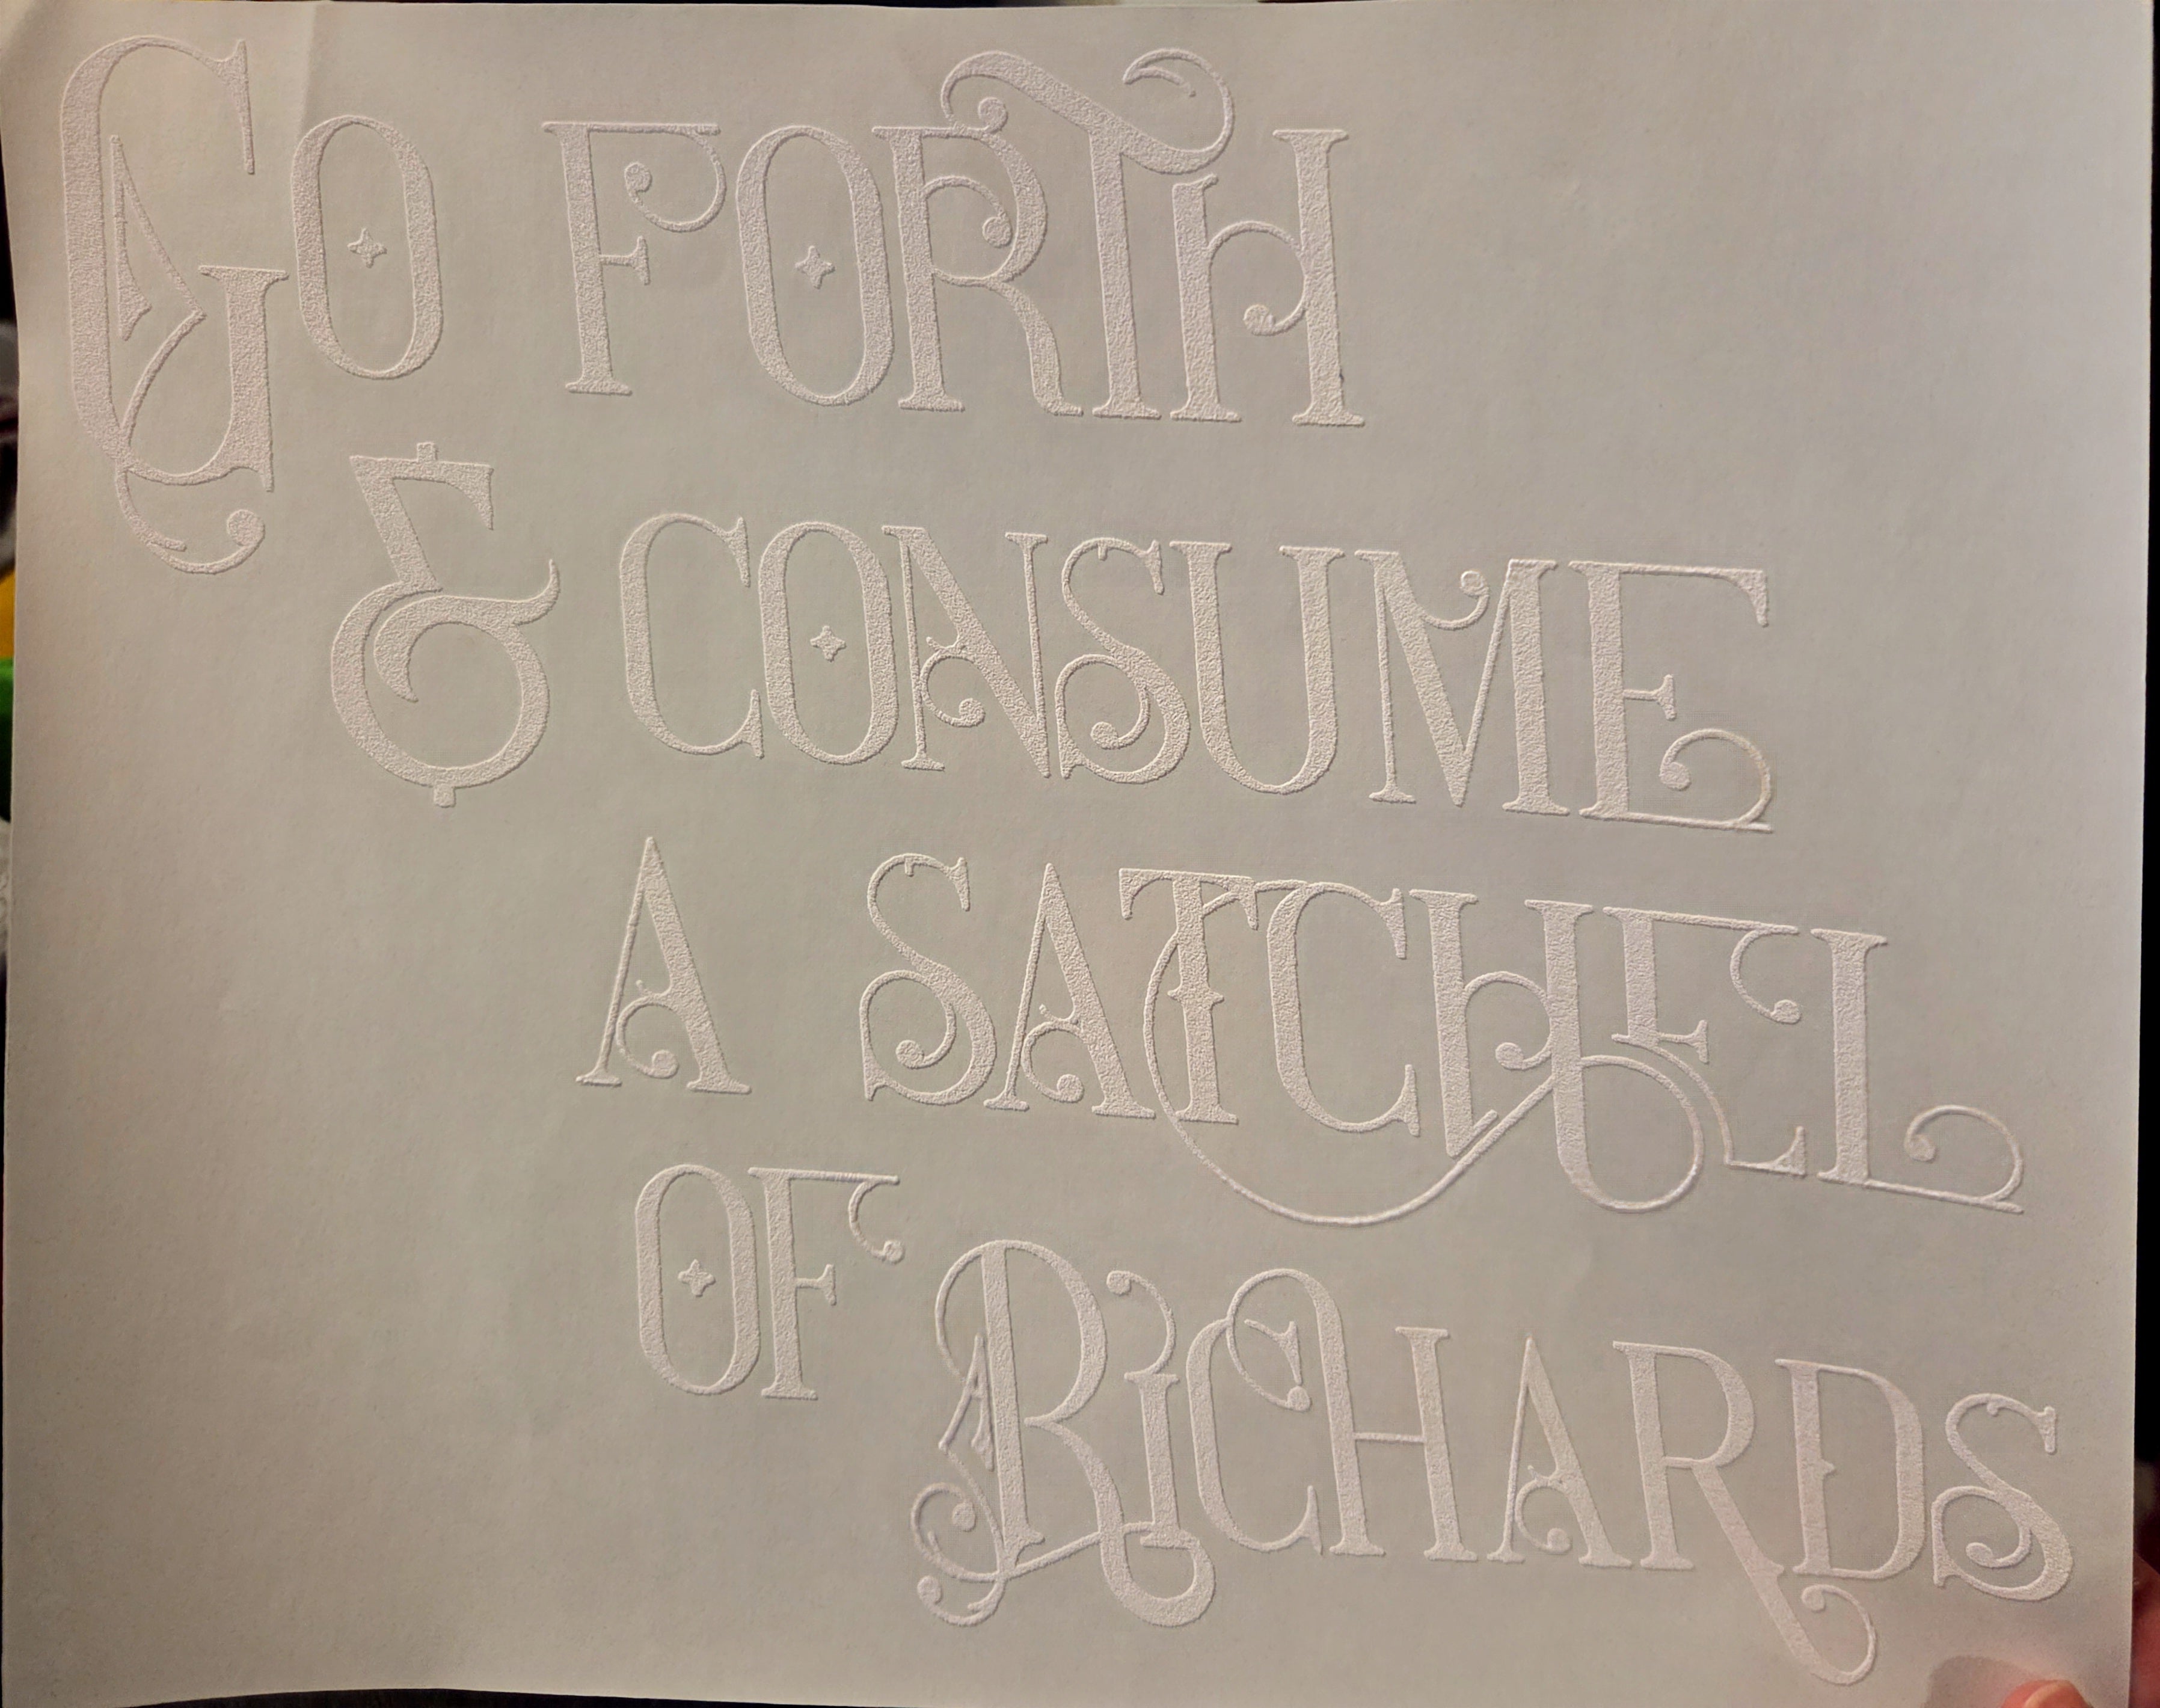 Go FORTH
& CONSUME
A SATCHEL
OF
RiCHARDS